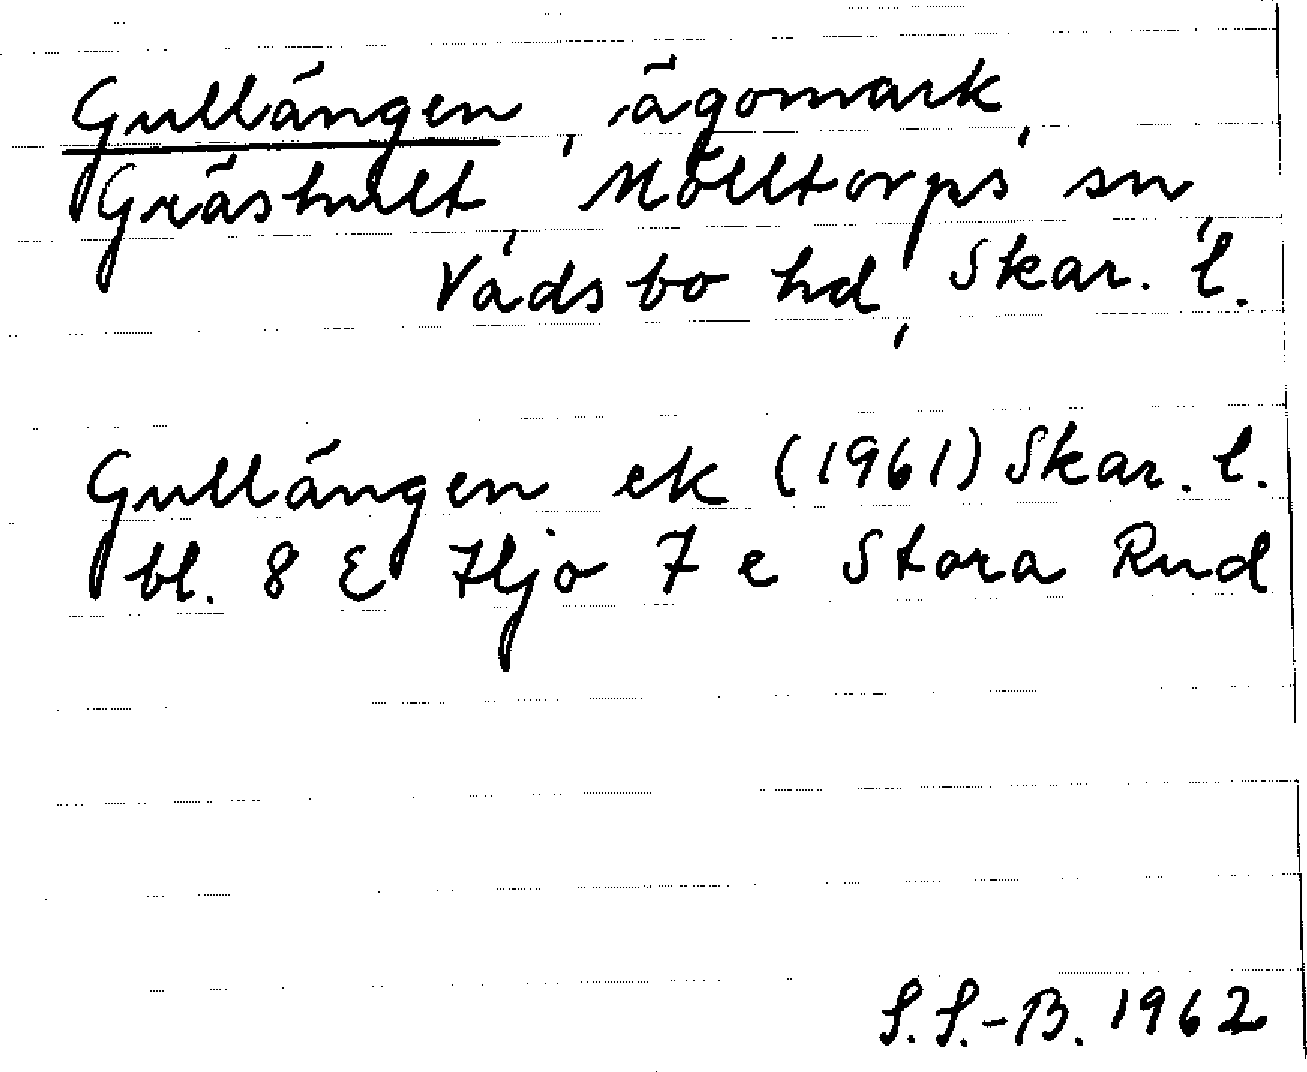 Gullängen, ägomark,
Gräshult, Mölltorps sn,
Vadsbo hd, Skar. l.
Gullängen ek (1961) Skar. l.
bl. 8 E Hjo 7 e Stora Rud
S.S.-B. 1962